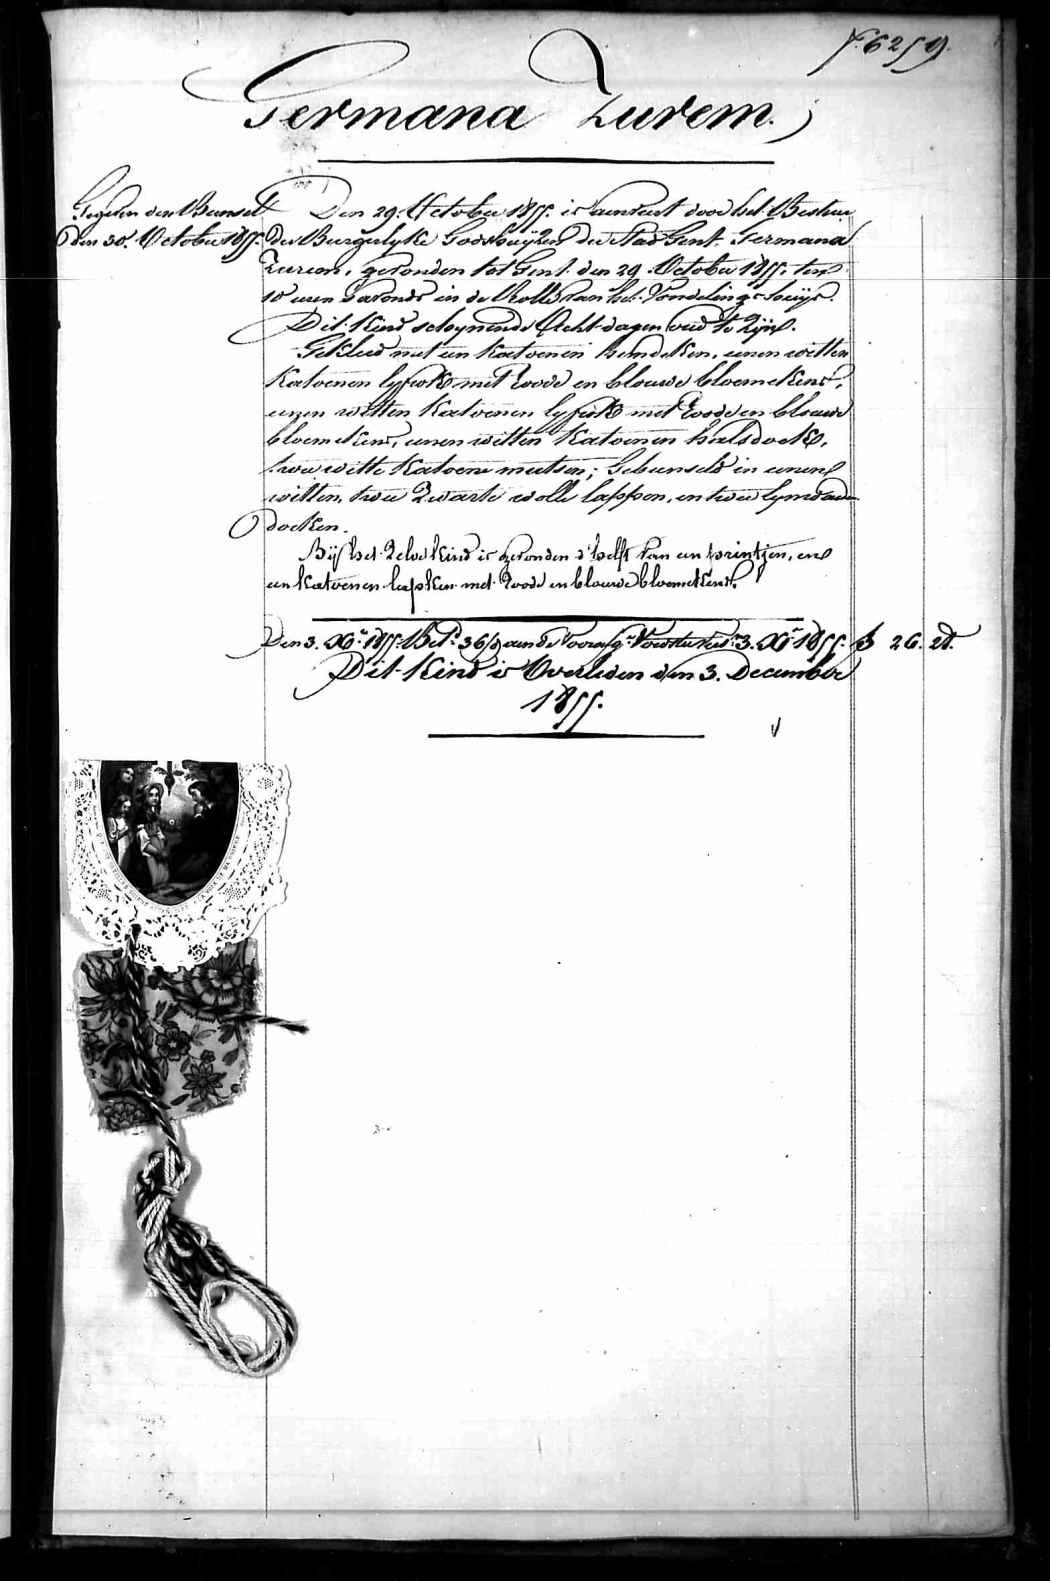 F. 6259.
Germana Zurem.
Gegeven den Bunsel
Den 30. October 1855.
Den 29. October 1855. is aenveert door het Bestuer
der Burgerlyke Godshuyzen der Stad Gent. Germana
Zurem, gevonden tot Gent den 29. October 1855. ten
10 uren s'avonds in de Rolle van het Vondelingshuys.
Dit Kind schynende Acht dagen oud te Zyn.
Gekleed met een Katoenen hemdeken, eenen witten
Katoenen lyfrok met Roode en blouwe bloemekens,
eenen witten Katoenen lyfrok met Roode en blouwe
bloemekens, eenen witten Katoenen halsdoek,
twee witte Katoene mutsen; Gebunseld in eenen
witten, twee Zwarte wolle lappen, en twee lynwaede
doeken.
Bij het Zelve Kind is gevonden d'helft van een printjen, en
een Katoenen lapken met Roode en blouwe bloemekens.
Den 3. Xr. 1855. Bet. 36 aen de 3. Xr. 1855. 26. 21.
Dit Kind is Overleden den 3. December
1855.